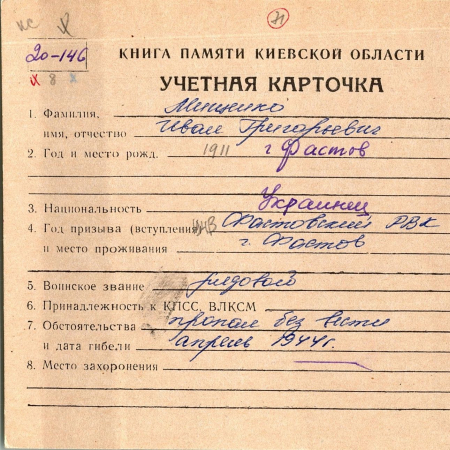 КС
71
20-146
8
КНИГА ПАМЯТИ КИЕВСКОЙ ОБЛАСТИ
УЧЕТНАЯ КАРТОЧКА
1. Фамилия, Мищенко
имя, отчество Иван Григорьевич
2. Год и место рожд. 1911 г Фастов
3. Национальность Украинец
4. Год призыва (вступления) Фастовский РВК
и место проживания г. Фастов
5. Воинское звание рядовой
6. Принадлежность к КПСС, ВЛКСМ
7. Обстоятельства пропал без вести
и дата гибели апрель 1944г.
8. Место захоронения